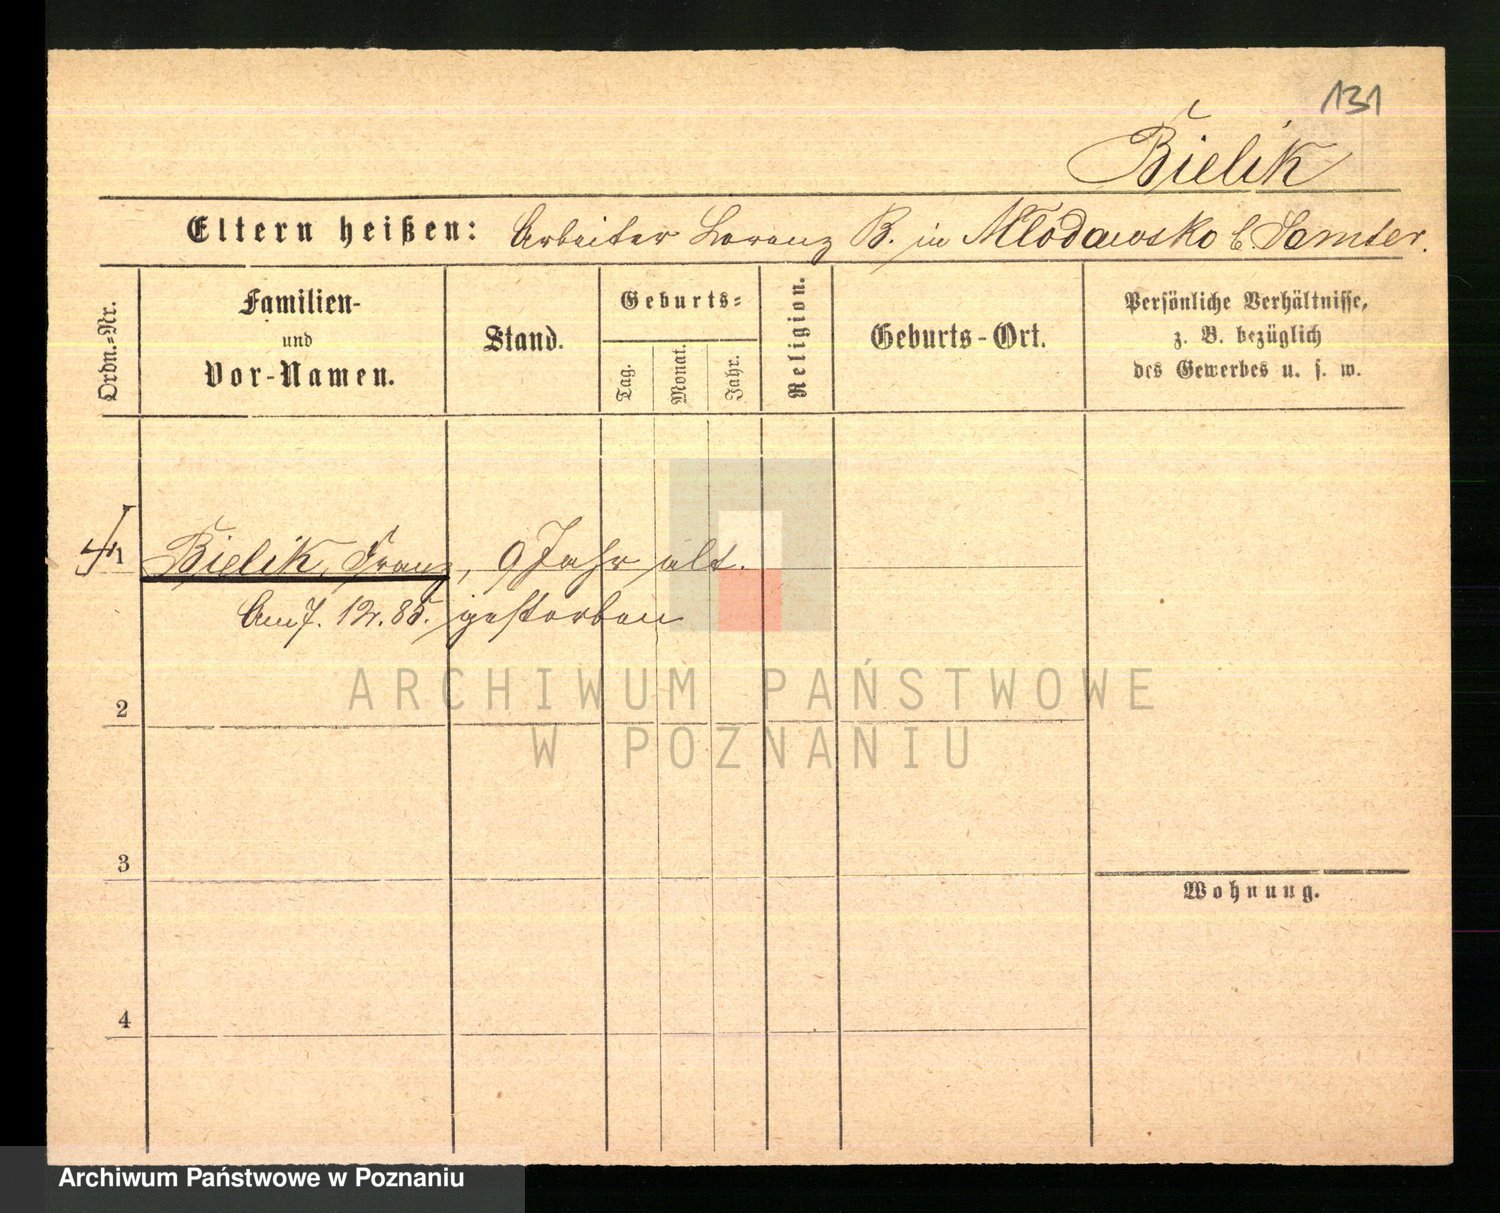 131
Bielik
Eltern heißen: Arbeiter Lorenz B. in Młodawsko b Samter.
Ordn.-Nr.
Familien-
und
Vor-Namen.
Stand.
Geburts-
Tag.
Monat.
Jahr.
Religion.
Geburts-Ort.
Persönliche Verhältnisse,
z. B. bezüglich
des Gewerbes u. s. w.
1 Bielik, Franz, 9 Jahr alt.
Am 7. 12. 85. gestorben
2
3
4
Wohnung.
ARCHIWUM PAŃSTWOWE
W POZNANIU
Archiwum Państwowe w Poznaniu